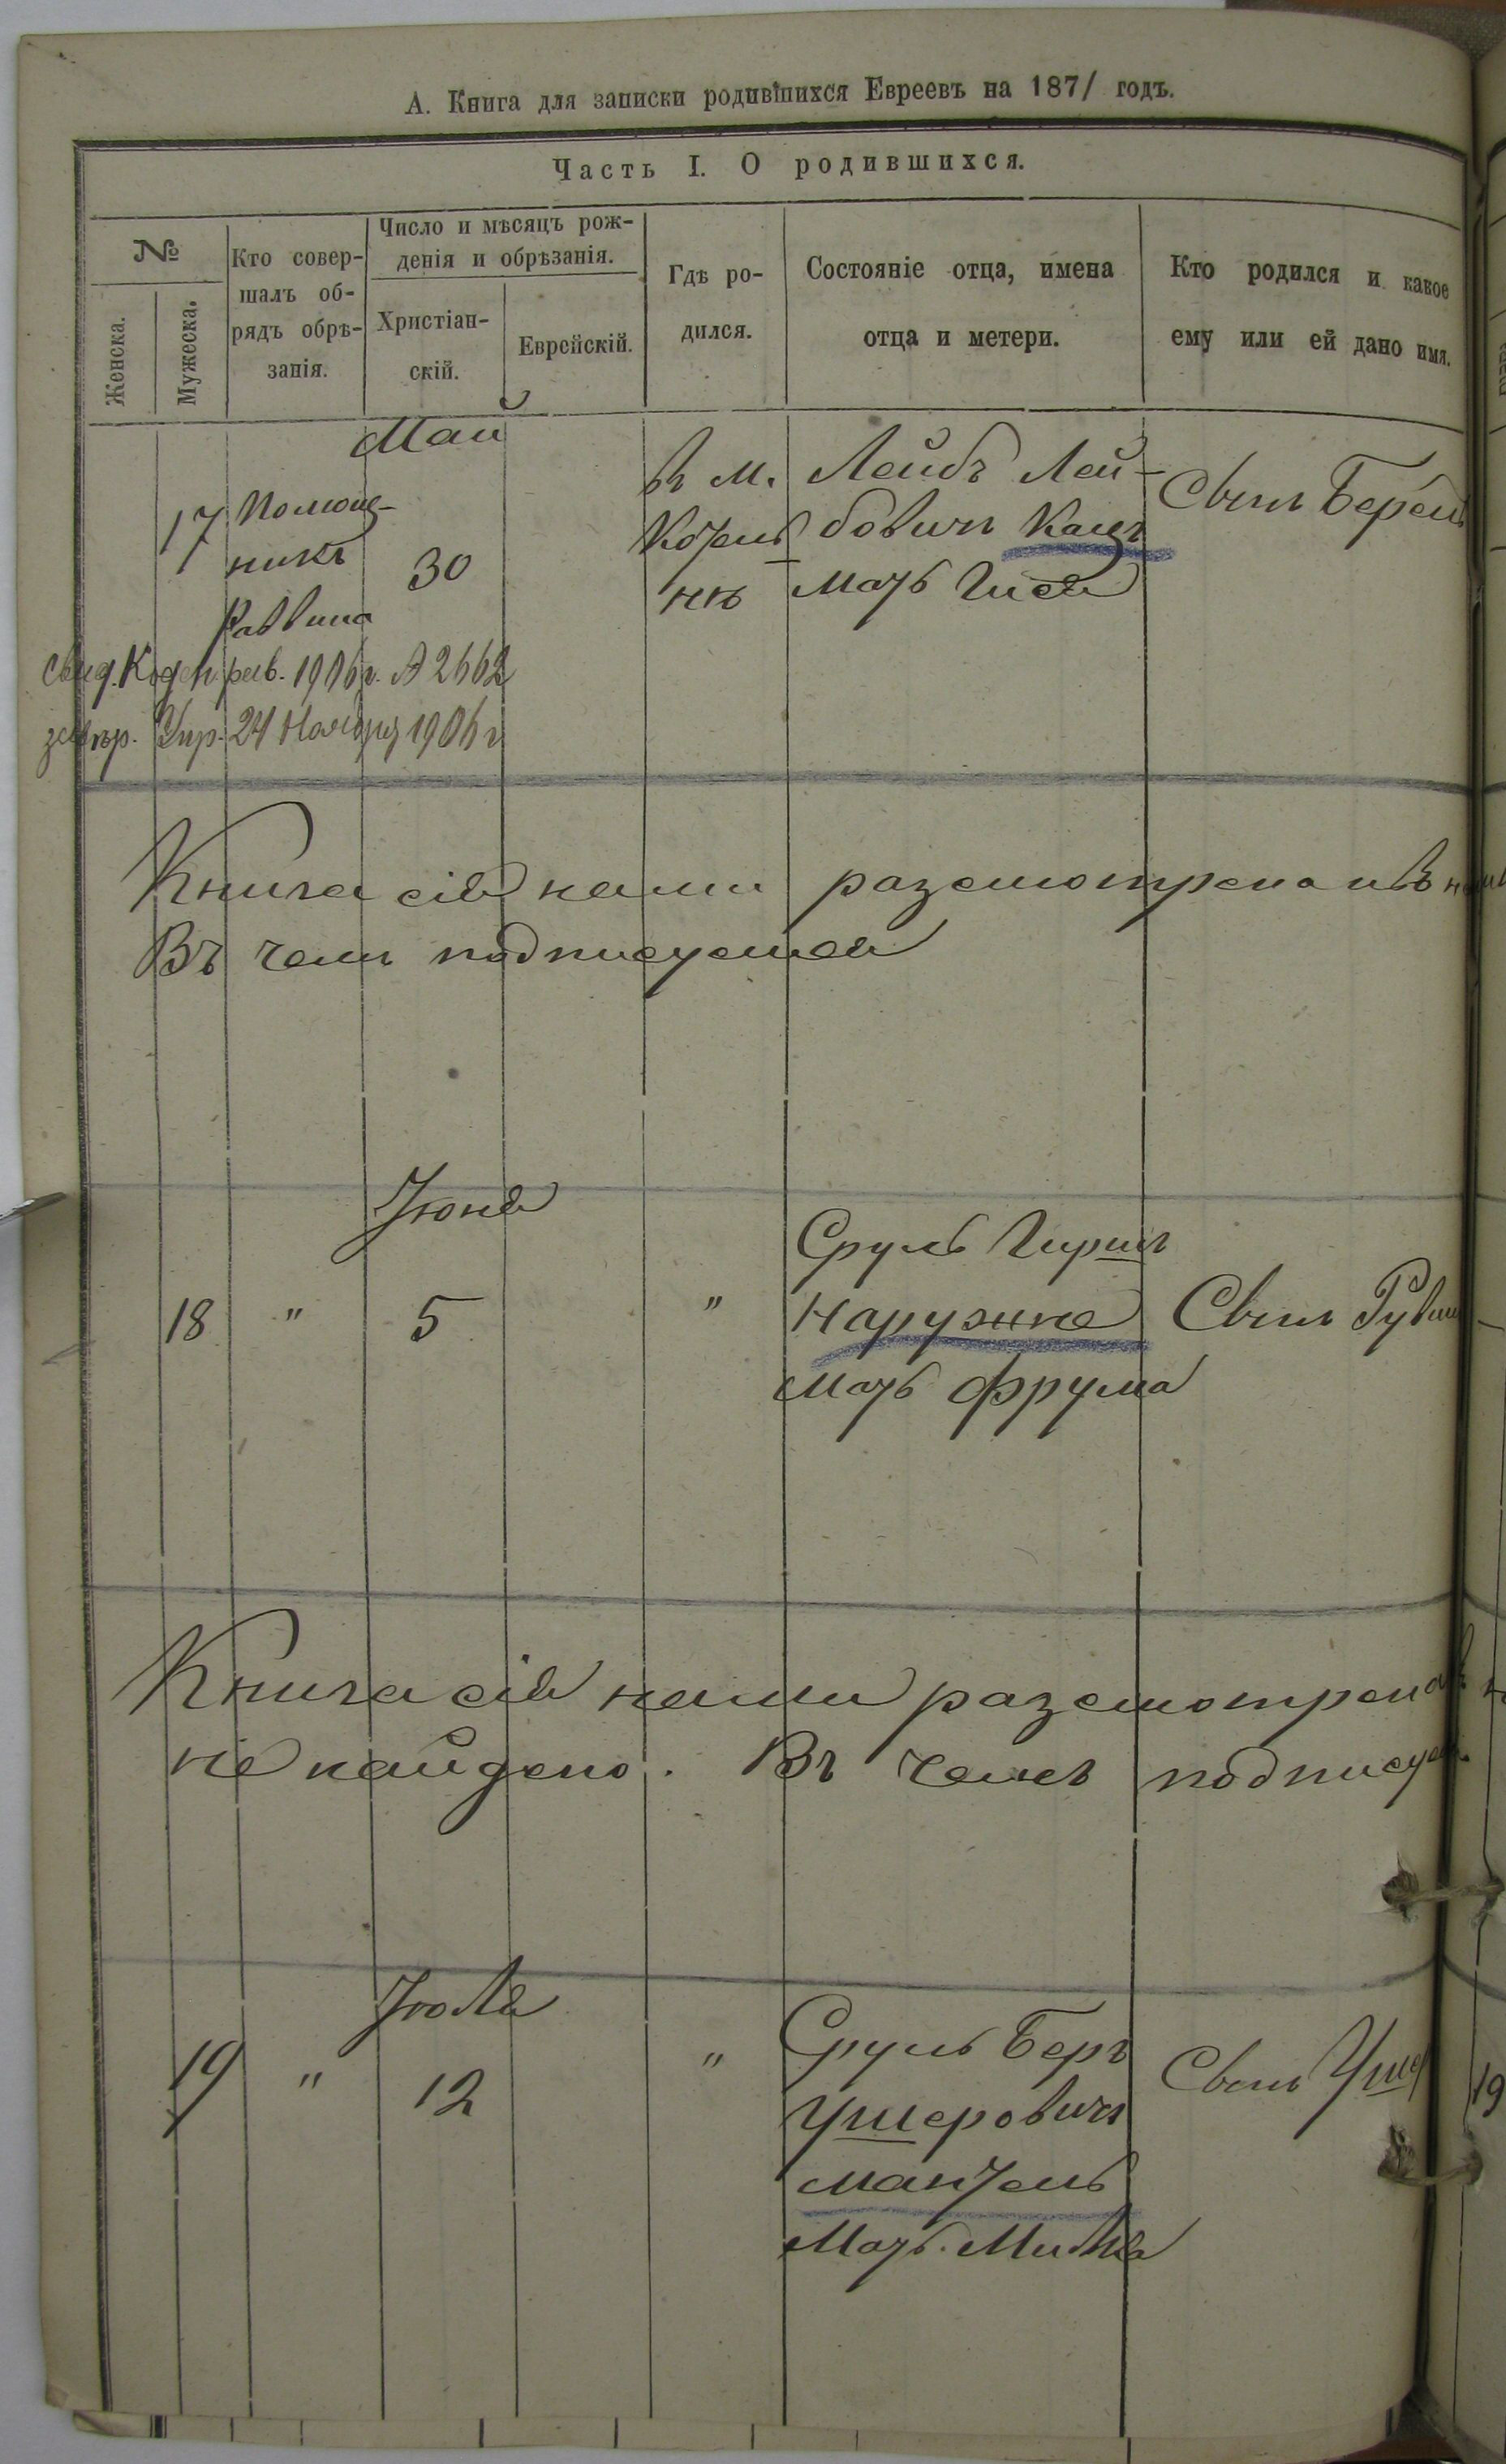 А. Книга для записки родившихся Евреевъ на 1871 годъ.
Часть I. О родившихся.
№
Женска.
Мужеска.
Кто совер-
шалъ об-
рядъ обрѣ-
занія.
Число и мѣсяцъ рож-
денія и обрѣзанія.
Христіан-
скій.
Еврейскій.
Гдѣ ро-
дился.
Состояніе отца, имена
отца и метери.
Кто родился и какое
ему или ей дано имя.
Май
17
Помощ-
никъ
Раввина
30
въ м.
Лейбъ Лей-
бовичъ Кацъ
мать
Сынъ
1906 г. № 2662
24 Ноября 1906 г
Книга сія нами разсмотрена
Въ чемъ подписуемся
Іюня
18 " 5 "
Сруль Гиршъ
Наружне
мать Фрума
Сынъ
Книга сія нами разсмотрена
не найдено. Въ чемъ
Іюля
19 " 12 "
Сруль Беръ
Ушеровичъ
мантель
Мать
Сынъ
19